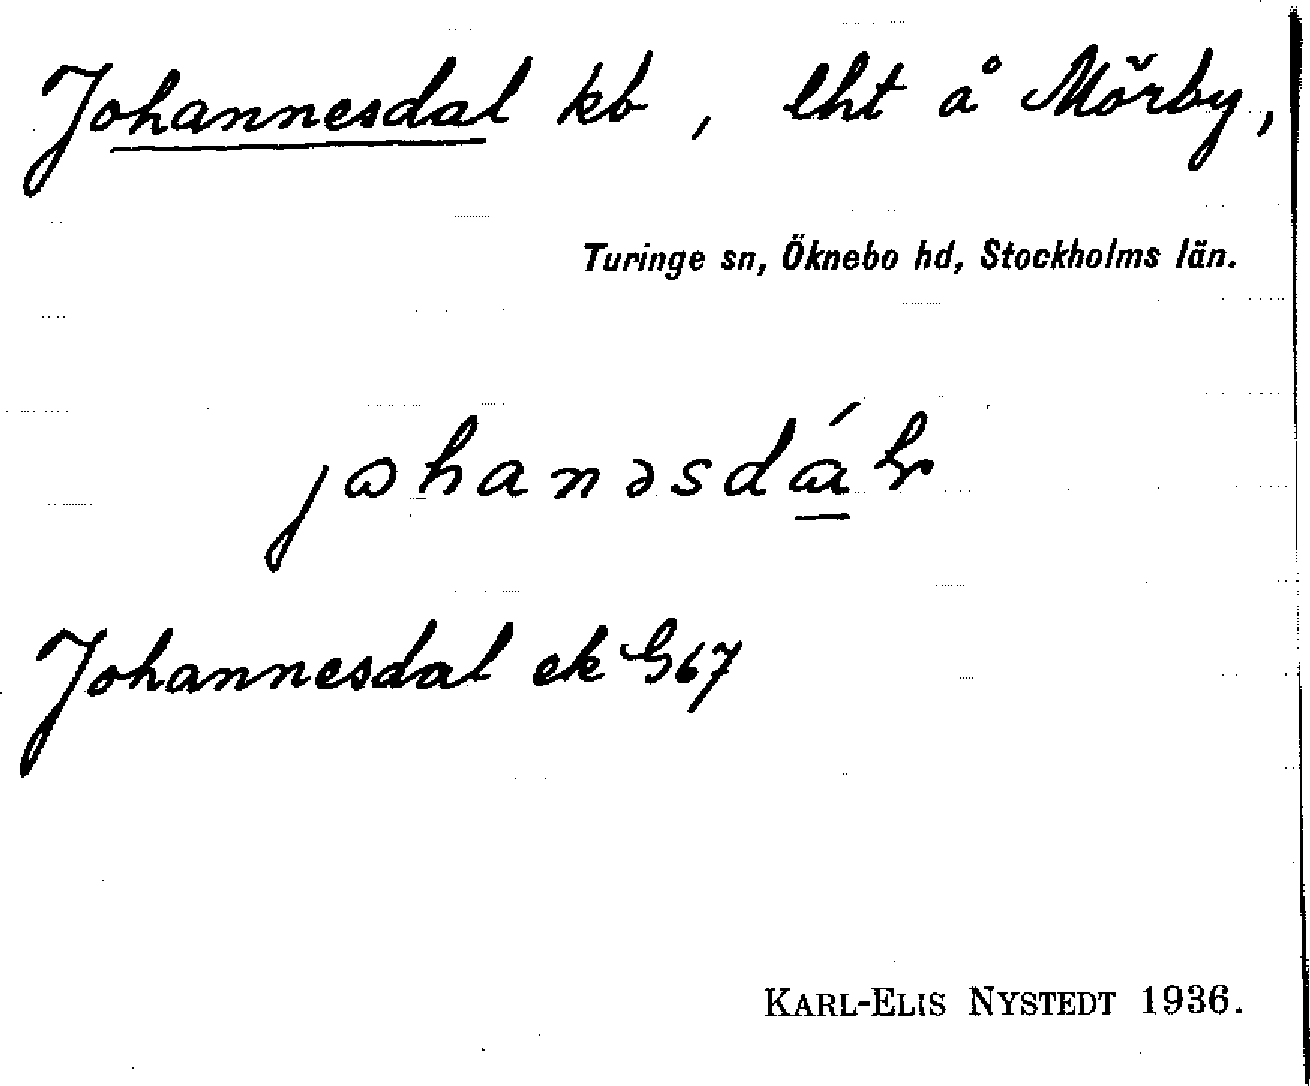 Johannesdal kb, lht å Mörby,
Turinge sn, Öknebo hd, Stockholms län.
Johannesdal ek G67
KARL-ELIS NYSTEDT 1936.